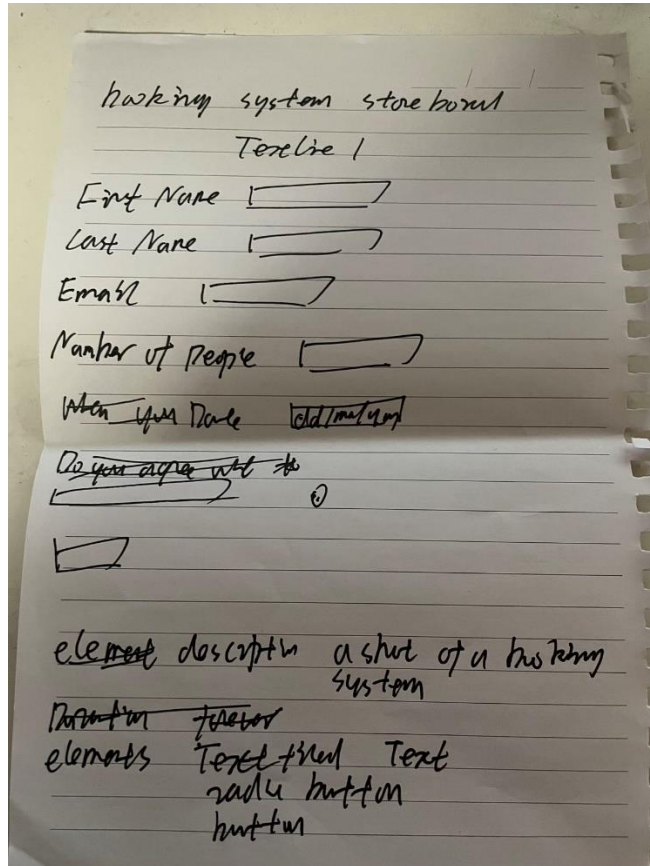 booking system storeboard
Textline 1
First Name
Last Name
Email
Number of People
When you Date dd/mm/yyyy
Do you agree
element description a shot of a booking
system
Duration forever
elements Text filed Text
radio button
button